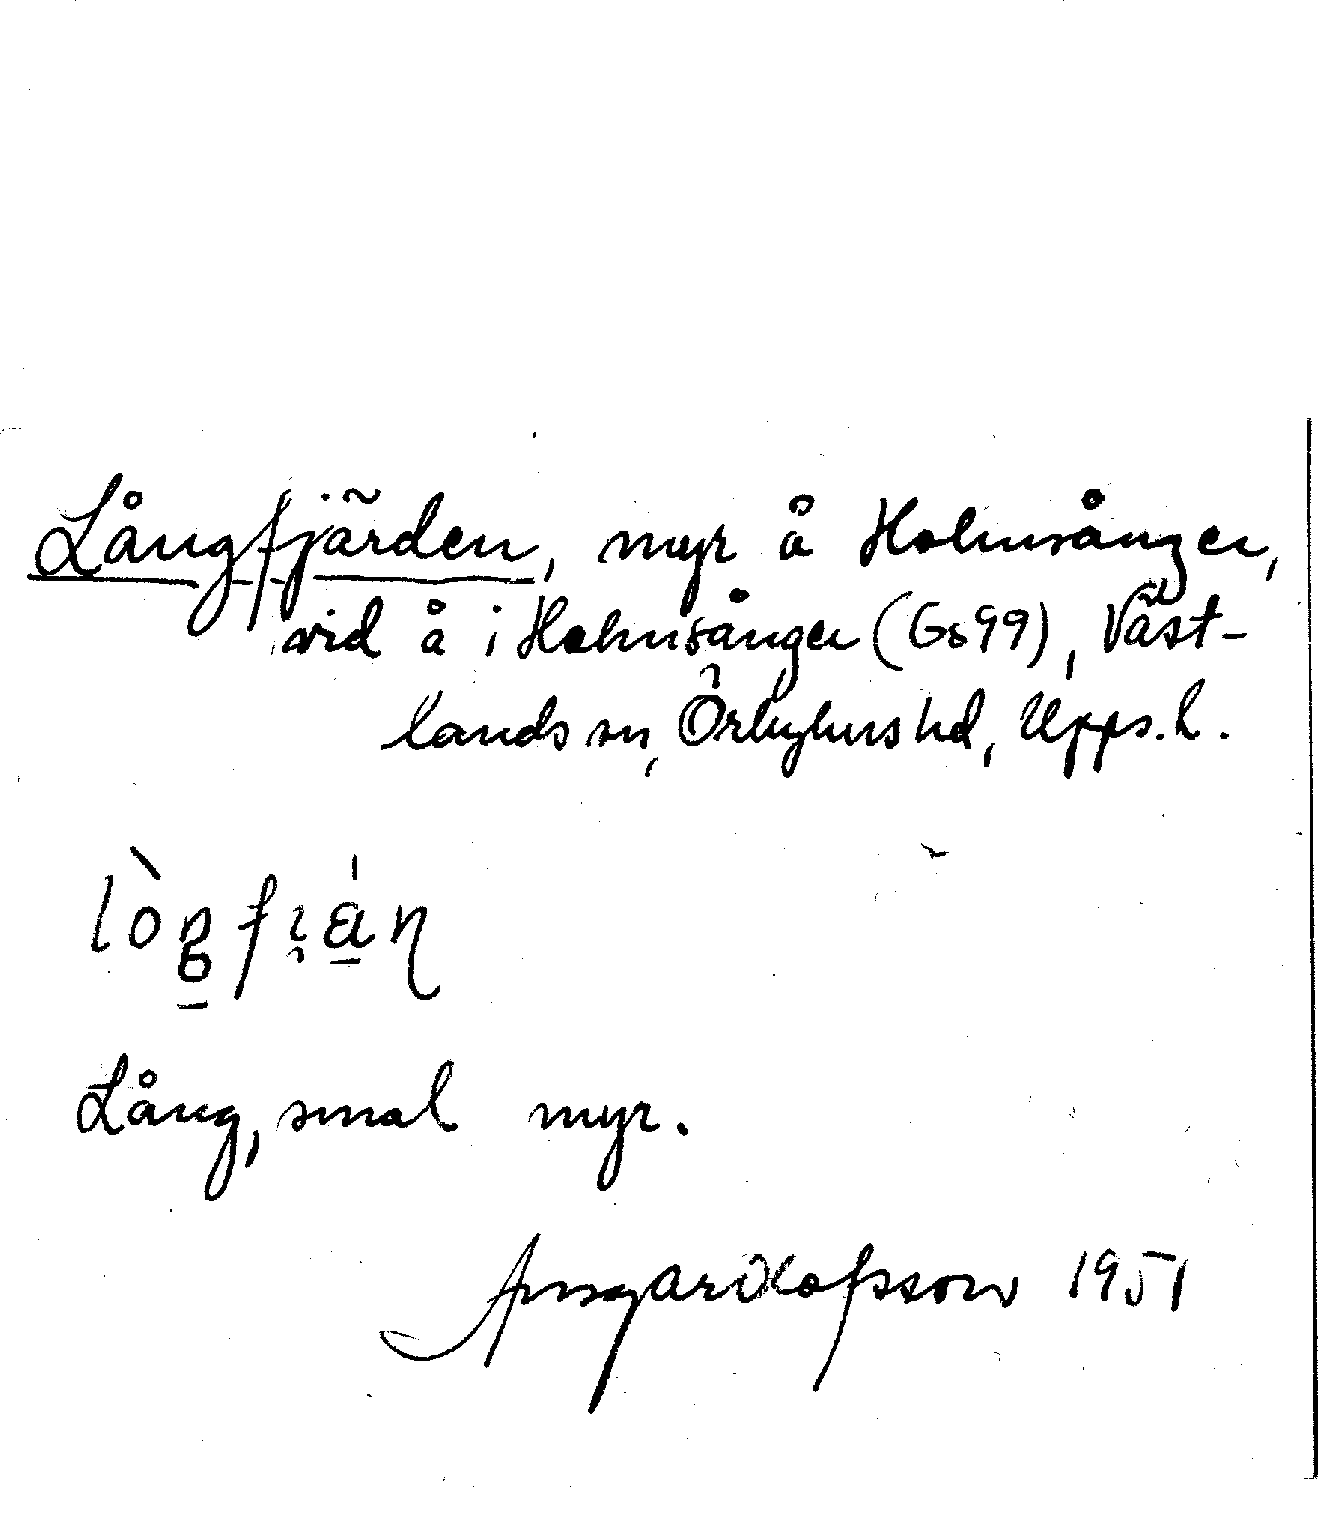 Långfjärden, myr å Holmsånger,
vid å i Holmsånger (Gs99), Väst-
lands sn, Örbyhus hd, Upps. l.
Lång, smal myr.
Ansgar Olofsson 1951